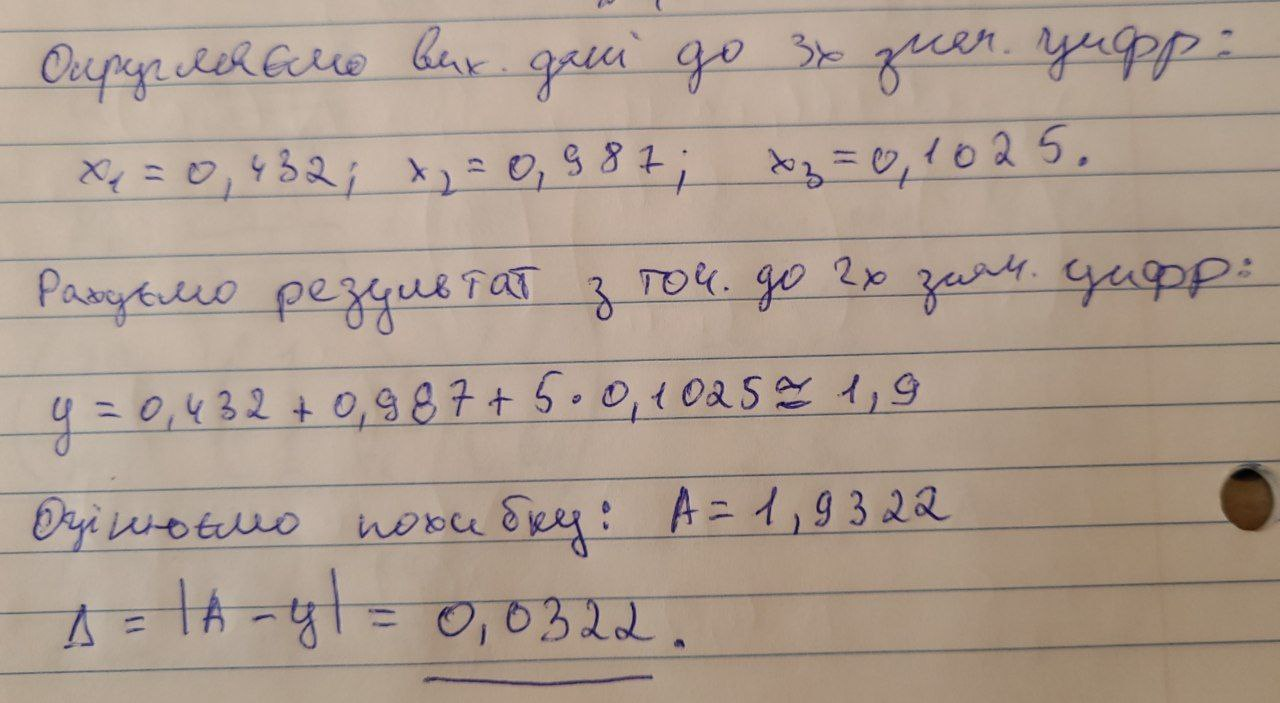 Округляємо вих. дані до 3х знач. цифр:
x₁ = 0,432; x₂ = 0,987; x₃ = 0,1025.
Рахуємо результат з точ. до 2х знач. цифр:
y = 0,432 + 0,987 + 5 · 0,1025 ≅ 1,9
Оцінюємо похибку: A = 1,9322
Δ = |A - y| = 0,0322.